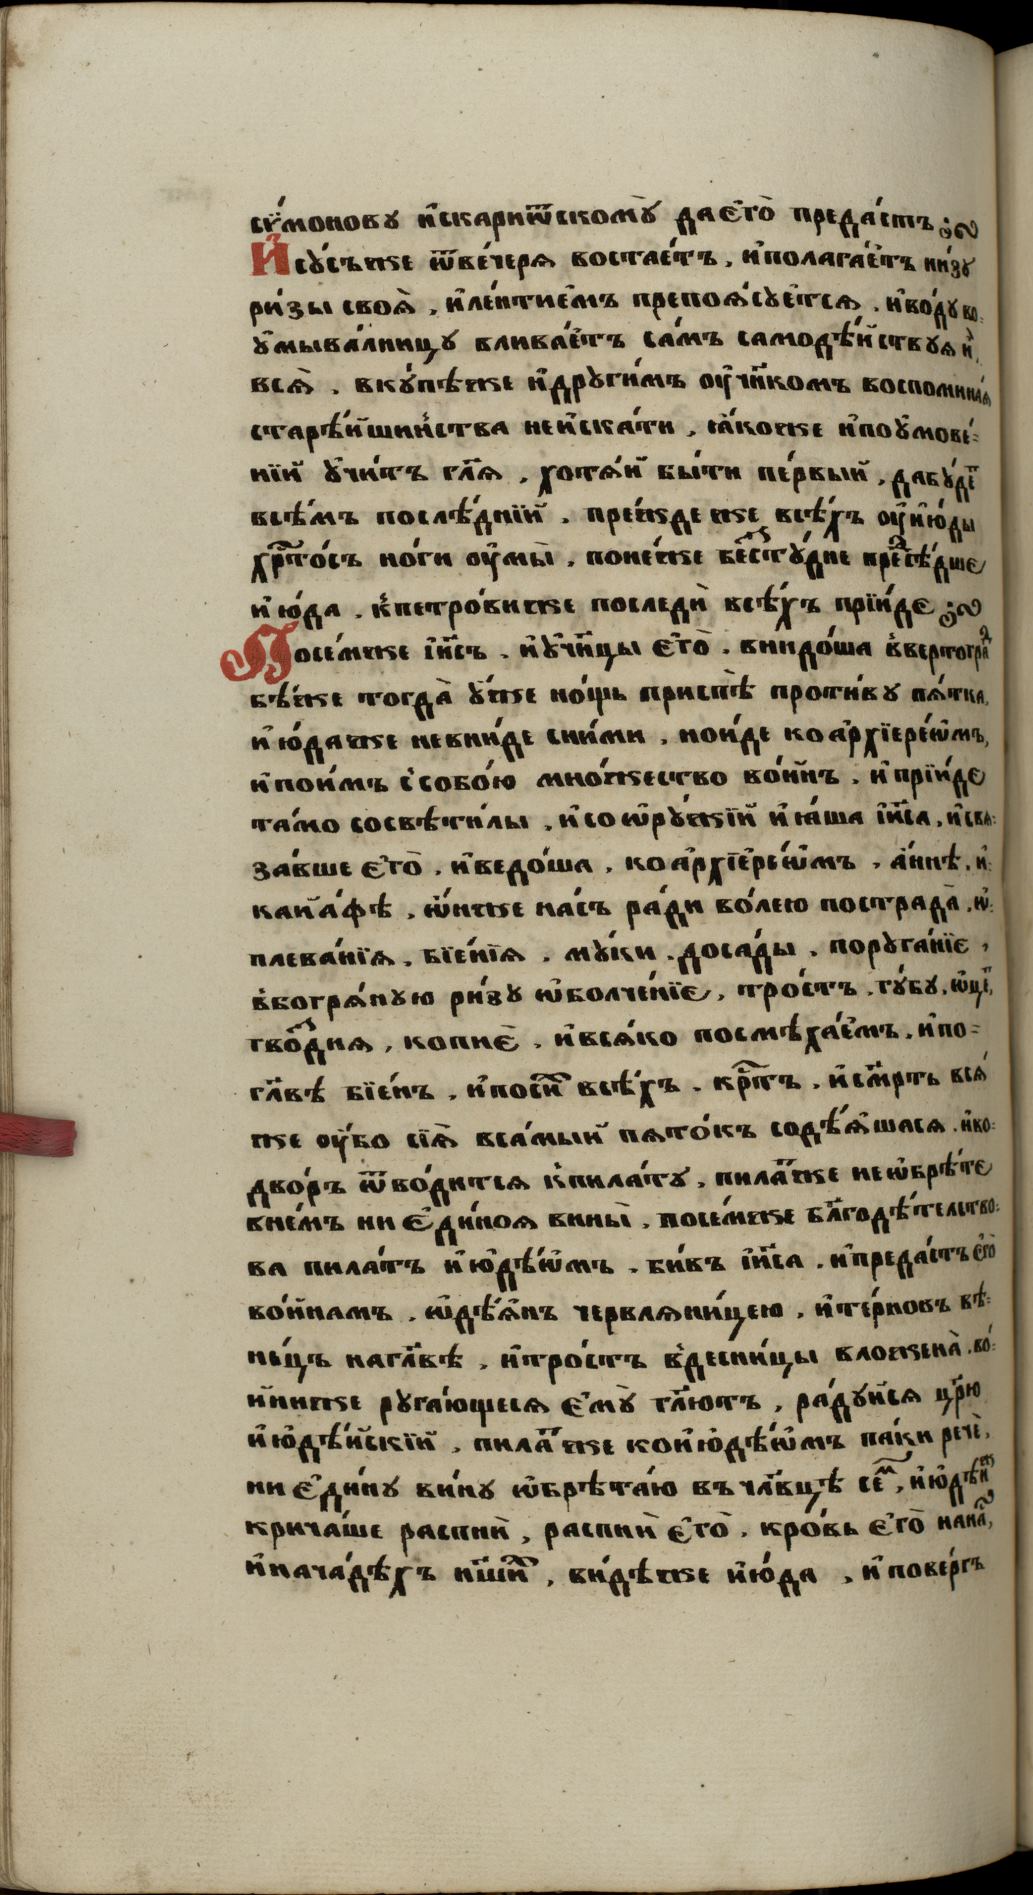 си́монову и҆скарио́тскомꙋ̀ да є҆го̀ преда́стъ
И҆сꙋ́съже ѿве́черѧ воста́етъ, и҆полага́етъ ни́зꙋ
ри́зы своѧ̀, и҆ле́нтием̾ъ препоѧ́сꙋетсѧ, и҆во́дꙋ во-
ѹ҆мыва́лницꙋ влива́етъ са́мъ самодѣ́йствꙋѧ и҆
всѧ̀, вкꙋ́пѣже и҆дрꙋги́мъ ѹ҆чн҃комъ воспомина́ѧ
старѣ́йшинства неи҆ска́ти, ꙗ҆́коже и҆поѹ҆мове́-
нїй ѹ҆чи́тъ гл҃ѧ, хотѧ́й бы́ти пе́рвый, дабꙋ́де
всѣ́мъ послѣ́днїй, пре́ждеже всѣ́хъ ѹ҆ и҆ю́ды
хрⷭ҇то́съ но́ги ѹ҆мы̀, поне́же бесстꙋ́дне прⷣесѣ́дше
и҆ю́да, кпетро́виже последѝ всѣ́хъ прїи́де
Посе́мже і҆и҃съ, и҆ѹ҆чн҃цы є҆го̀, внидо́ша в̾вертогра́ⷣ
бѣ́же тогда̀ ѹ҆́же но́щь приспѣ̀ проти́вꙋ пѧ́тка,
и҆ю́даже невни́де сни́ми, пои́де ко а҆рхїере́ѡмъ,
и҆пои́мъ с̾собо́ю мно́жество во́инъ, и҆прїи́де
та́мо сосвѣти́лы, и҆соѡ҆рꙋ́жїй и҆ꙗ́ша і҆и҃са, и҆свѧ-
за́вше є҆го̀, и҆ведо́ша, ко а҆рхїере́ѡмъ, а҆́ннѣ, и҆
каиа́фѣ, ѡ҆́ниже на́съ ра́ди во́лею пострада̀, ѡ҆-
плева́нїѧ, бїе́нїѧ, мꙋ́ки, доса́ды, порꙋга́нїе,
в̾богрѧ́нꙋю ри́зꙋ ѡ҆болче́нїе, тро́сть, гꙋ́бꙋ, ѡ҆це́,
гво́здиѧ, копиѐ, и҆всѧ́ко посмѣха́емъ, и҆по-
гл҃вѣ̀ бїе́нъ, и҆поси́х всѣ́хъ, крⷭ҇тъ, и҆сме́рть всѧ́
же ѹ҆́бо сїѧ̀ вса́мый пѧто́къ содѣ́ѧшасѧ, и҆ко-
дво́ръ ѿво́дитсѧ к̾пила́тꙋ, пила́тже неѡ҆брѣ́те
вне́мъ ни є҆ди́ноѧ вины̀, посе́мже бл҃годѣ́тельство-
ва пила́тъ и҆ю҆дѣ́ѡмъ, би́въ і҆и҃са, и҆преда́стъ є҆го̀
во́инамъ, ѡ҆дѣ́ѧнъ червлѧни́цею, и҆те́рновъ вѣ-
не́цъ нагл҃вѣ̀, и҆тро́сть в̾десни́цы вложена̀, во́-
иниже рꙋга́ющесѧ є҆мꙋ̀ гл҃ютъ, ра́дꙋйсѧ цр҃ю
и҆ю҆дѣ́йскїй, пила́тже кои҆ю҆дѣ́ѡмъ па́ки речѐ,
ни є҆ди́нꙋ винꙋ̀ ѡ҆брѣта́ю въ чл҃вцѣ се́мⷨ, и҆ю҆дѣ́иже
крича́ше распнѝ, распнѝ є҆го̀, кро́вь є҆го̀ нана́с,
и҆начáдѣхъ на́ших, ви́дѣже и҆ю́да, и҆пове́ргъ